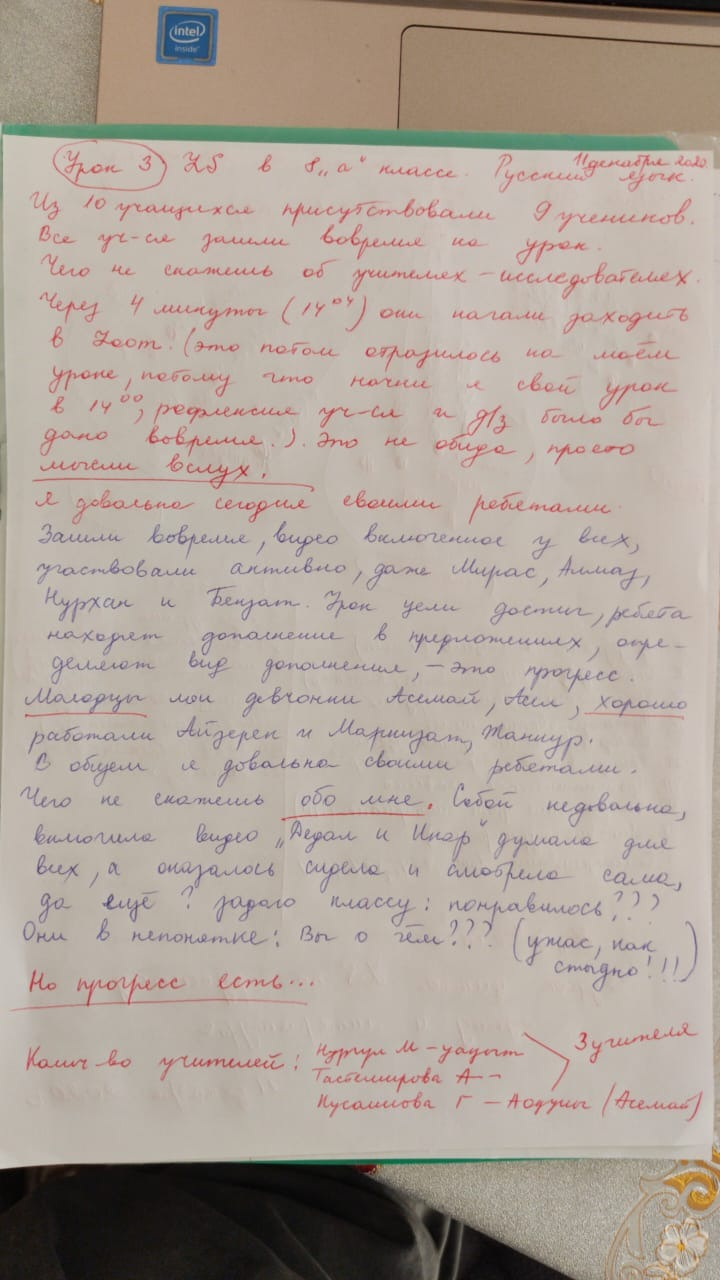 intel
inside
11 декабря 2020
Урок 3 LS в 8 „а" классе. Русский язык.
Из 10 учащихся присутствовали 9 учеников.
Все уч-ся зашли вовремя на урок.
Чего не скажешь об учителях-исследователях.
Через 4 минуты (14 04) они начали заходить
в Zoom. (это потом отразилось на моём
уроке, потому что начни я свой урок
в 14 00, рефлексия уч-ся и д/з было бы
дано вовремя.). Это не обида, просто
мысли вслух.
Я довольна сегодня своими ребятами.
Зашли вовремя, видео включенное у всех,
участвовали активно, даже Мирас, Алмаз,
Нурхан и Бекзат. Урок цели достиг, ребята
находят дополнение в предложениях, опре-
деляют вид дополнения, – это прогресс.
Молодцы мои девчонки Асемай, Асел, хорошо
работали Айзерек и Маржизат, Жаннур.
В общем я довольна своими ребятами.
Чего не скажешь обо мне. Собой недовольна,
включила видео „Дедал и Икар" думала для
всех, а оказалось сидела и смотрела сама,
да ещё ? задаю классу: понравилось???
Они в непонятке: Вы о чём??? (ужас, как
стыдно!!!)
Но прогресс есть...
Колич-во учителей: Нургул М –
3 учителя
Тастемирова А –
Кусаинова Г – (Асемай)